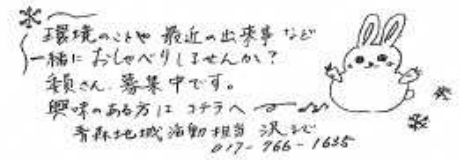 環境のことや 最近の出来事など
一緒に おしゃべりしませんか？
委員さん 募集中です。
興味のある方は コチラへ
青森地域活動担当 沢まで
017-766-1635